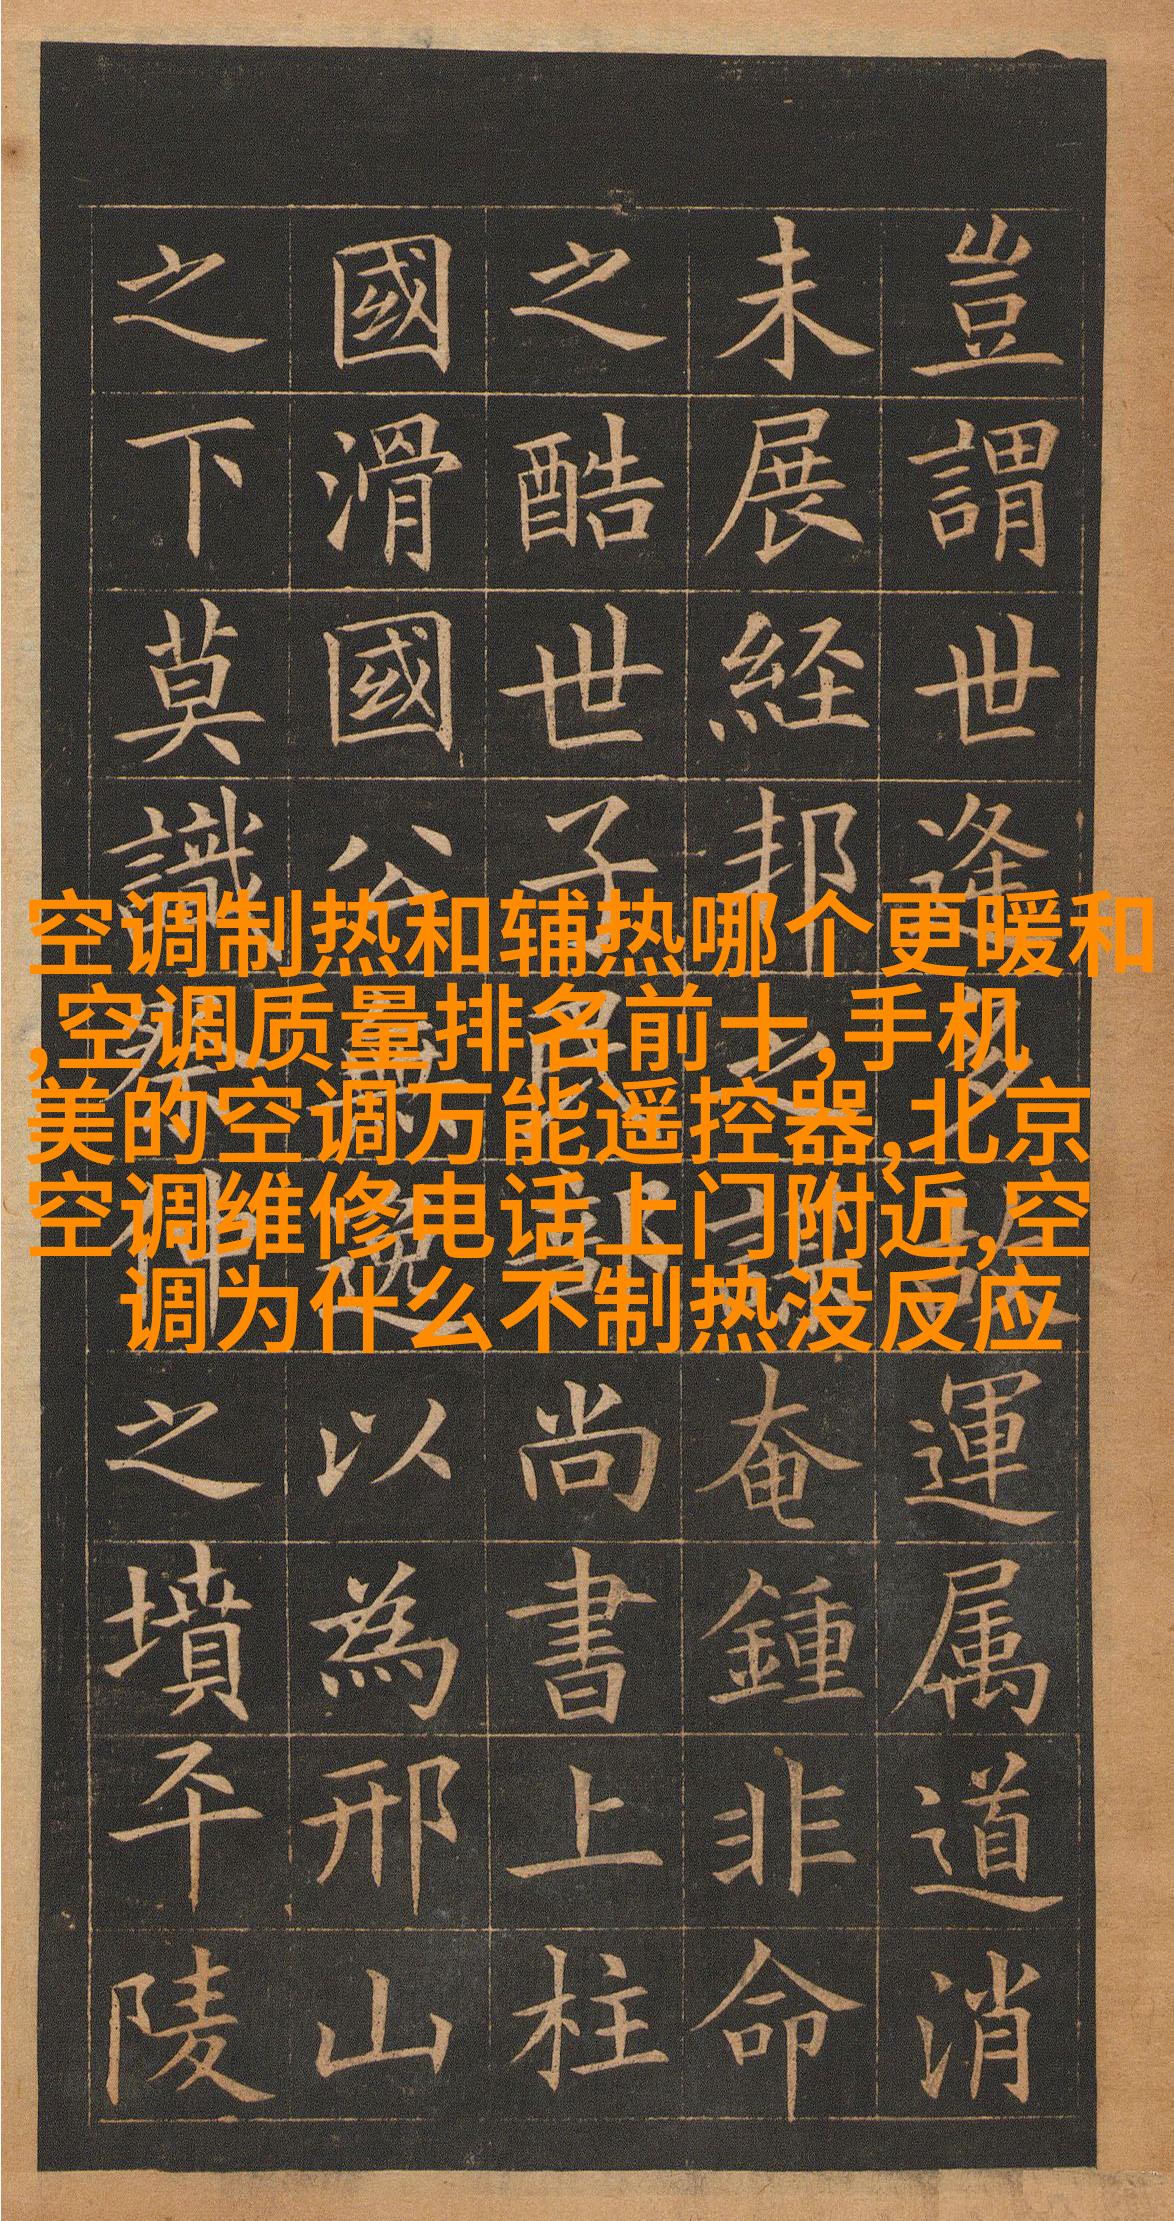 空调制热和辅热哪个更暖和
,空调质量排名前十,手机
美的空调万能遥控器,北京
空调维修电话上门附近,空
调为什么不制热没反应
豈謂世逢多故運属道消
未展経邦之謀奄鍾非命
之酷世子民部尚書上柱
國滑國公無逸以為邢山
之下莫識祭仲之墳平陵